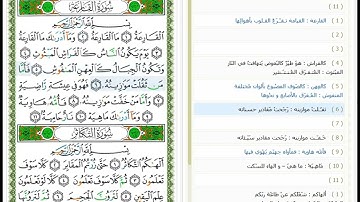 سُورَةُ القَارِعَةِ
بِسْمِ ٱللَّهِ ٱلرَّحْمَٰنِ ٱلرَّحِيمِ
ٱلْقَارِعَةُ ١ مَا ٱلْقَارِعَةُ ٢ وَمَآ أَدْرَىٰكَ مَا ٱلْقَارِعَةُ ٣
يَوْمَ يَكُونُ ٱلنَّاسُ كَٱلْفَرَاشِ ٱلْمَبْثُوثِ ٤
وَتَكُونُ ٱلْجِبَالُ كَٱلْعِهْنِ ٱلْمَنفُوشِ ٥ فَأَمَّا
مَن ثَقُلَتْ مَوَٰزِينُهُۥ ٦ فَهُوَ فِى عِيشَةٍ رَّاضِيَةٍ
٧ وَأَمَّا مَنْ خَفَّتْ مَوَٰزِينُهُۥ ٨ فَأُمُّهُۥ
هَاوِيَةٌ ٩ وَمَآ أَدْرَىٰكَ مَا هِيَهْ ١٠ نَارٌ حَامِيَةٌ ١١
سُورَةُ التَّكَاثُرِ
بِسْمِ ٱللَّهِ ٱلرَّحْمَٰنِ ٱلرَّحِيمِ
أَلْهَىٰكُمُ ٱلتَّكَاثُرُ ١ حَتَّىٰ زُرْتُمُ ٱلْمَقَابِرَ ٢ كَلَّا سَوْفَ
تَعْلَمُونَ ٣ ثُمَّ كَلَّا سَوْفَ تَعْلَمُونَ ٤ كَلَّا لَوْ تَعْلَمُونَ
عِلْمَ ٱلْيَقِينِ ٥ لَتَرَوُنَّ
(11)
القارعة : القيامة تقرع القلوب بأهوالها (1)
(2)
(3)
كالفراش : هو طير كالبعوض يتهافت في النار (4)
المبثوث : المتفرق المنتشر
كالعهن : كالصوف المصبوغ بألوان مختلفة (5)
المنفوش : المفرق بالأصابع و نحوها
ثقلت موازينه : رجحت مقادير حسناته (6)
(7)
خفت موازينه : رجحت مقادير سيئاته (8)
فأمه هاوية : فمأواه جهنم يهوي فيها (9)
ماهيه : ما هي - و الهاء للسكت (10)
(11)
ألهاكم : شغلكم عن طاعة ربكم (1)